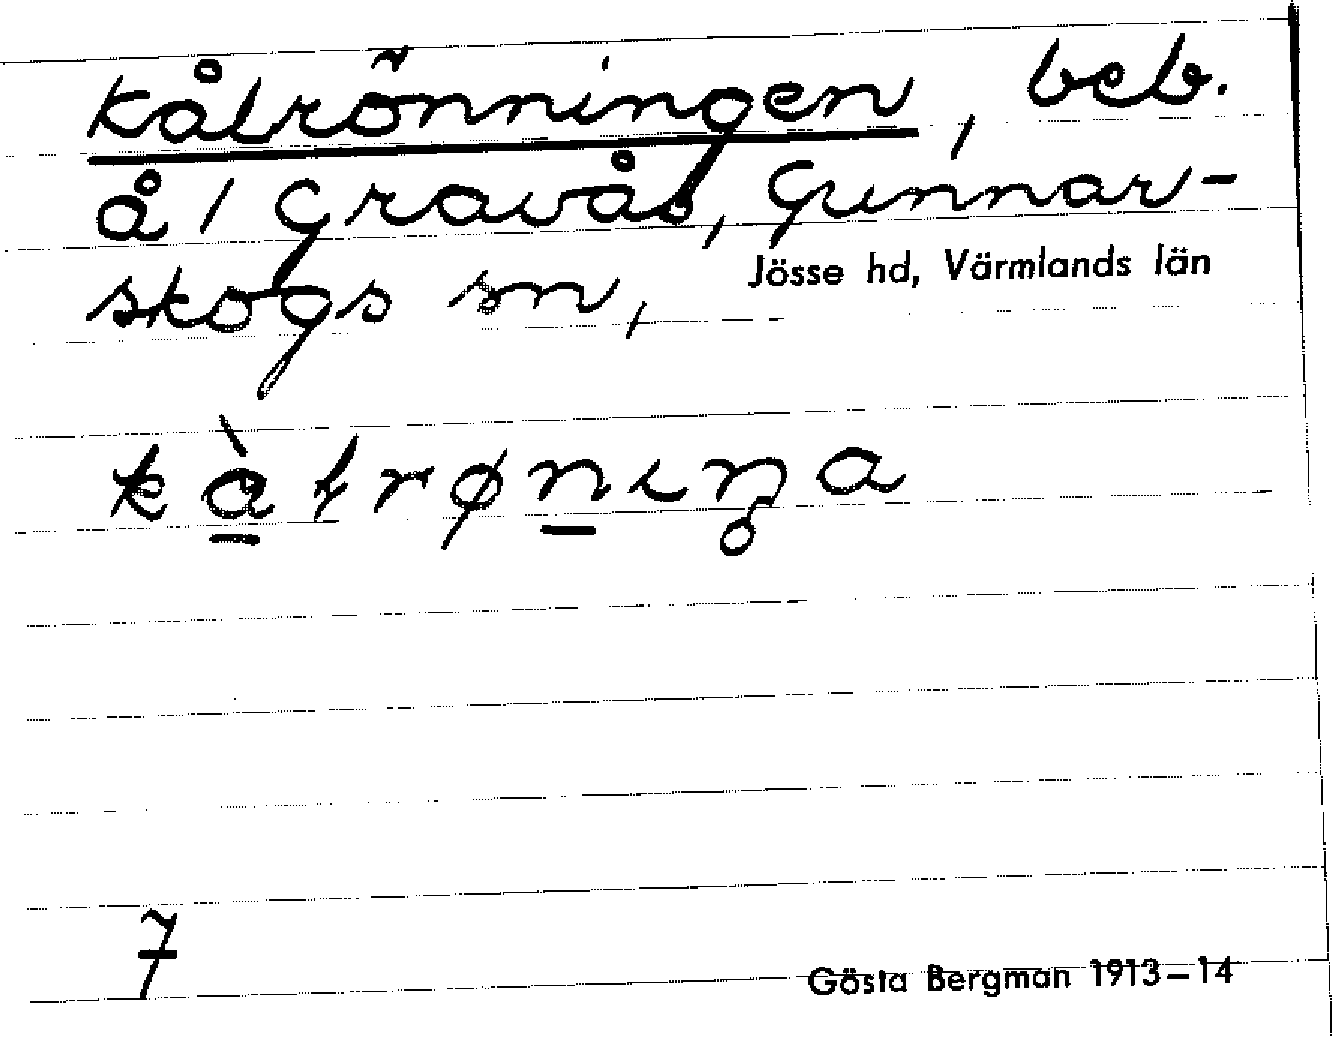 Kålrönningen, beb.
å / Gravås, Gunnar-
skogs sn,
Jösse hd, Värmlands län
7
Gösta Bergman 1913–14